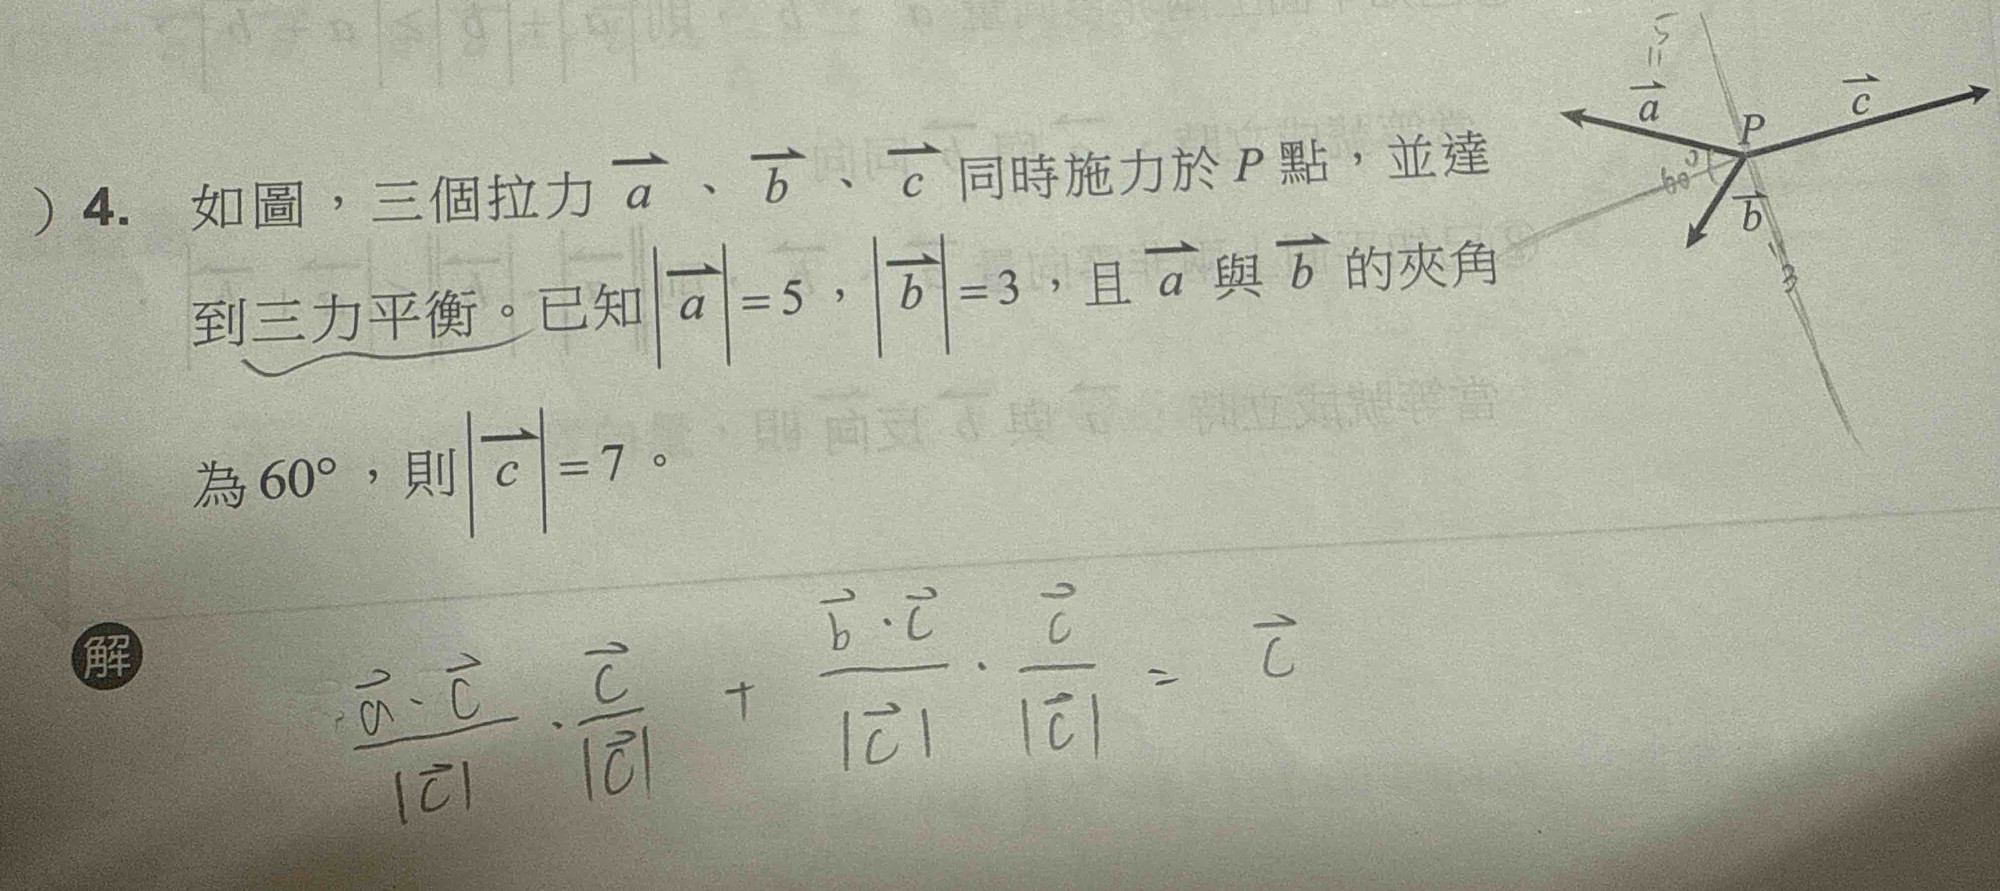 )4. 如圖，三個拉力 $\vec{a}$、$\vec{b}$、$\vec{c}$ 同時施力於 P 點，並達
到三力平衡。已知 $|\vec{a}|=5$，$|\vec{b}|=3$，且 $\vec{a}$ 與 $\vec{b}$ 的夾角
為 60°，則 $|\vec{c}|=7$。
5
=
$\vec{a}$
P
$\vec{c}$
60°
$\vec{b}$
3
解
$\frac{\vec{a}\cdot\vec{c}}{|\vec{c}|}\cdot\frac{\vec{c}}{|\vec{c}|}+\frac{\vec{b}\cdot\vec{c}}{|\vec{c}|}\cdot\frac{\vec{c}}{|\vec{c}|}=\vec{c}$